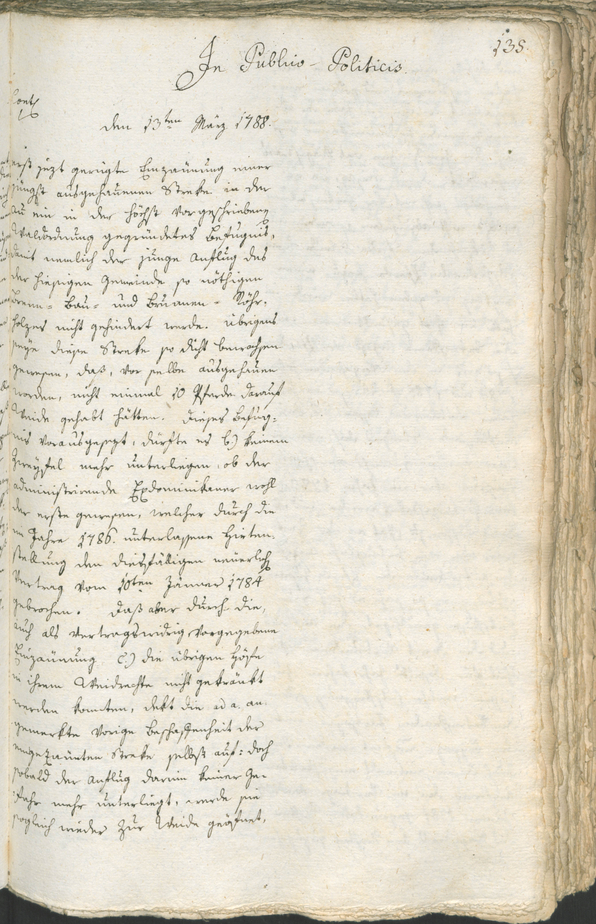 135.
In Publico-Politicis.
Cont
den 13ten März 1788.
erst jezt gerügte Einzäunung einer
jüngst ausgehauenen Streke in der
Au ein in der höchst vorgeschriebenen
Waldordnung gegründetes Befugniß,
damit nemlich der junge Anflug des
der hiesigen Gemeinde so nöthigen
Brenn- Bau- und Brunnen-Röhr-
holzes nicht gehindert werde. übrigens
seye diese Streke so dicht bewachsen
gewesen, daß, vor selbe ausgehauen
worden, nicht einmal 10 Pferde darauf
Weide gehabt hätten. Dieses Befug-
nis vorausgesezt, dürfte es b.) keinem
Zweyfel mehr unterliegen, ob der
administrirende Exdominikaner wohl
der erste gewesen, welcher durch die
im Jahre 1786. unterlassene Hirten-
stellung den diesfälligen neuerlich
Vertrag vom 10ten Jänner 1784
gebrochen. Daß aber durch die,
auch als Vertragswidrig vorgegebene
Einzäunung c.) die übrigen Höfe
in ihrem Weidrechte nicht gekränkt
werden konnten, dekt die ad a. an-
gemerkte vorige Beschaffenheit der
eingezäunten Streke selbst auf: doch
sobald der Anflug darinn keiner Ge-
fahr mehr unterliegt, werde sie
sogleich wieder zur Weide geöfnet,